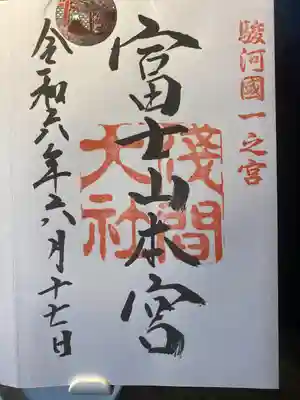 駿河國一之宮
富士山本宮
淺間
大社
令和六年六月十七日